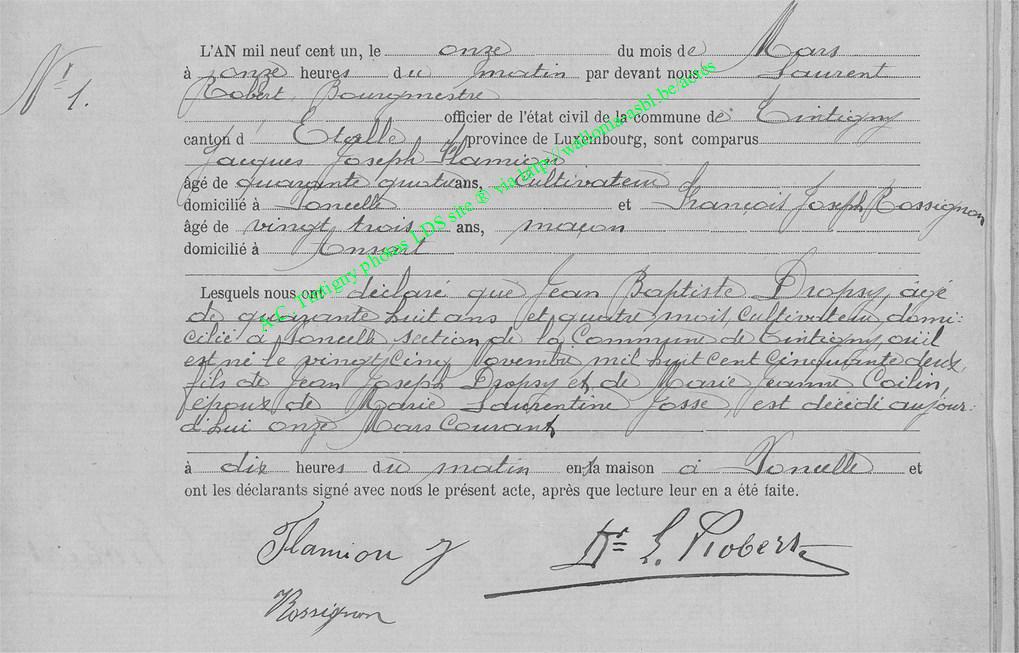 Nr 1.
L'AN mil neuf cent un, le onze du mois de Mars
à onze heures du matin par devant nous Laurent
Robert, Bourgmestre
officier de l'état civil de la commune de Tintigny
canton d'Etalle province de Luxembourg, sont comparus
Jacques Joseph Flamion
âgé de quarante quatre ans, cultivateur
domicilié à Poncelle et François Joseph Rossignon
âgé de vingt trois ans, maçon
domicilié à Ansart
Lesquels nous ont déclaré que Jean Baptiste Dropsy, âgé
de quarante huit ans et quatre mois, cultivateur, domi-
cilié à Poncelle section de la Commune de Tintigny, où il
est né le vingt cinq Novembre mil huit cent cinquante deux,
fils de Jean Joseph Dropsy et de Marie Jeanne
époux de Marie Laurentine Josse, est décédé aujour-
d'hui onze Mars Courant,
à dix heures du matin en la maison à Poncelle et
ont les déclarants signé avec nous le présent acte, après que lecture leur en a été faite.
Flamion J
L. Robert
Rossignon
A.C. Tintigny photos LDS site ® via http://wallonia-asbl.be/actes